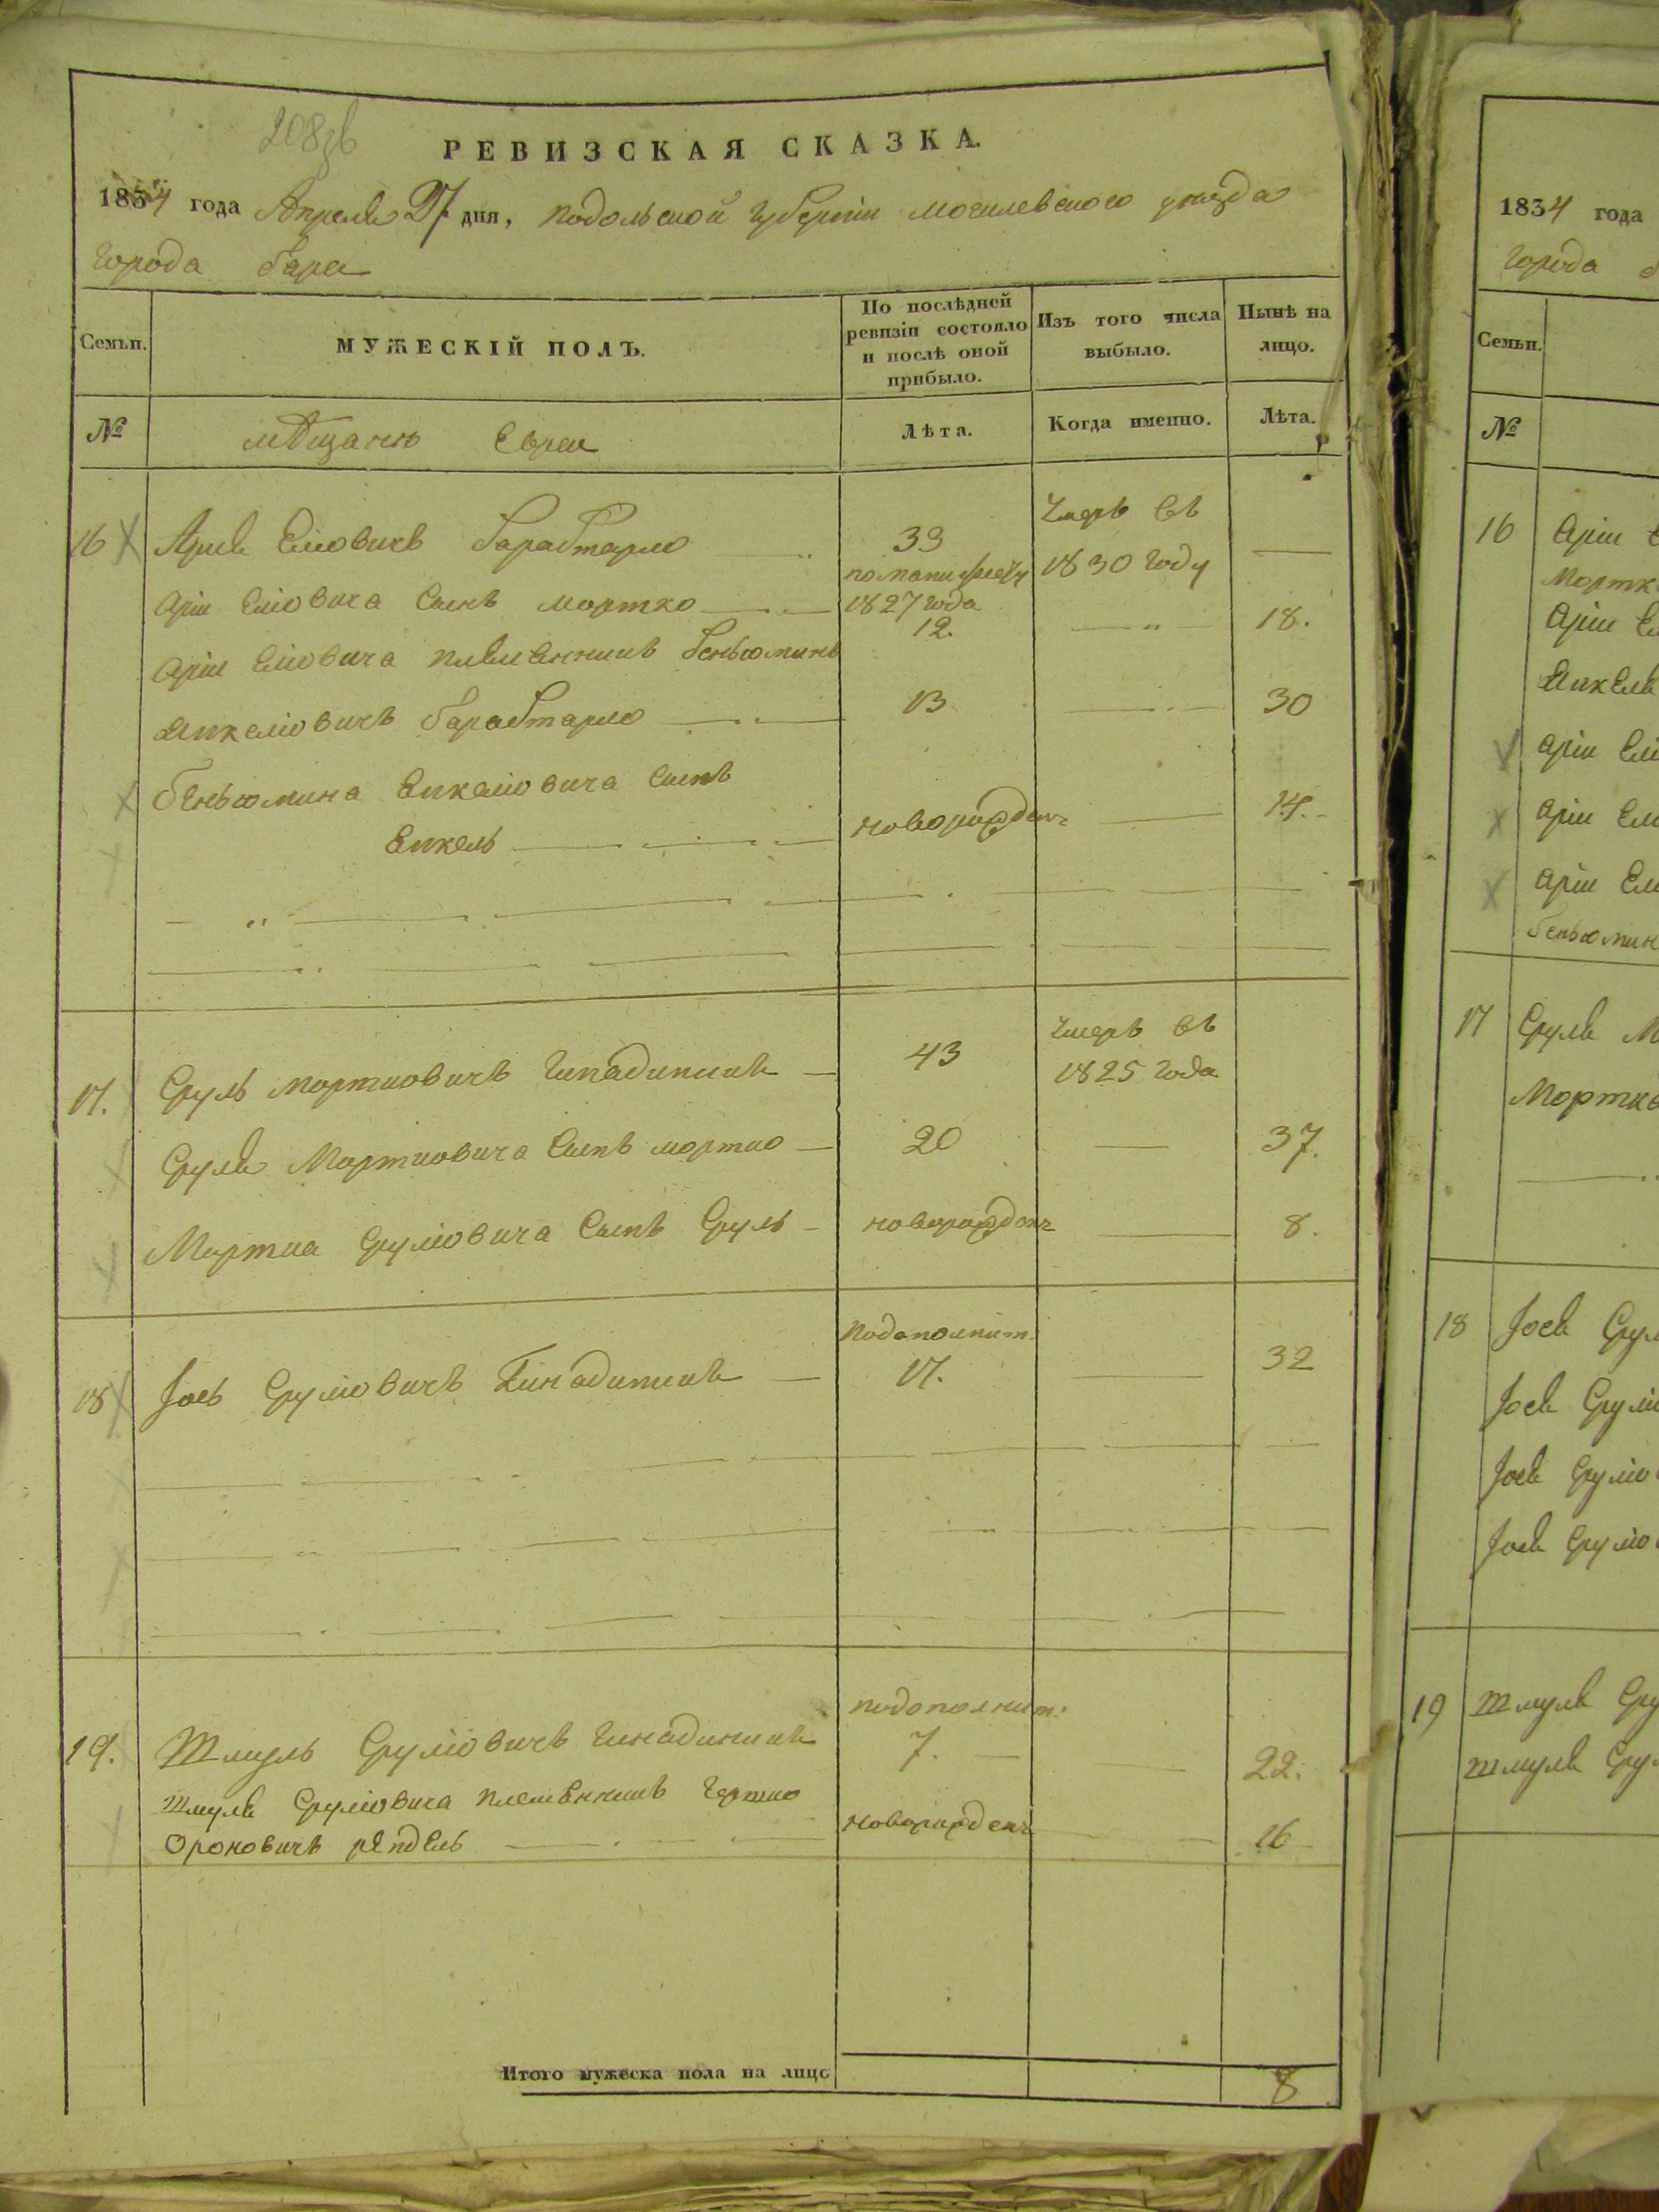 208зв
РЕВИЗСКАЯ СКАЗКА.
1834 года Апреля 27 дня, подольской губернiи могилевского уезда
города бара
Семьи. МУЖЕСКІЙ ПОЛЪ. По послѣдней ревизіи состояло и послѣ оной прибыло. Изъ того числа выбыло. Нынѣ на лицо.
№ мѣщанъ Евреи Лѣта. Когда именно. Лѣта.
16 Арiи Елiовичъ 39 Умеръ въ 1830 году
Арiи Елiовича Сынъ мортко по манифесту 1827 года 12. 18.
Арiи Елiовича племенникъ беньюминъ
Янкелiовичъ 13 30
беньюмина Енкелiовича Сынъ
Енкель новорожденъ 14.
17. Сруль мортковичъ 43 Умеръ въ 1825 года
Сруля Мортковича Сынъ мортко 20 37.
Мортка Срулiовича Сынъ Сруль новорожденъ 8.
18 Iось Срулiовичъ подополнит. 17. 32
19. Шмуль Срулiовичъ подополнит: 7. 22.
Шмуля Срулiовича племенникъ
Ороновичъ новорожденъ 16
Итого мужеска пола на лицо 8
1834 года
города
Семьи.
№
16 Арiи
Мортк
Арiи Ел
Янкеля
Арiи Елi
Арiи Ели
Арiи Ели
беньюмин
17 Сруля М
Мортка
18 Iося Срул
Iося Срулi
Iося Срулiо
Iося Срулiо
19 Шмуля Сру
Шмуля Сру